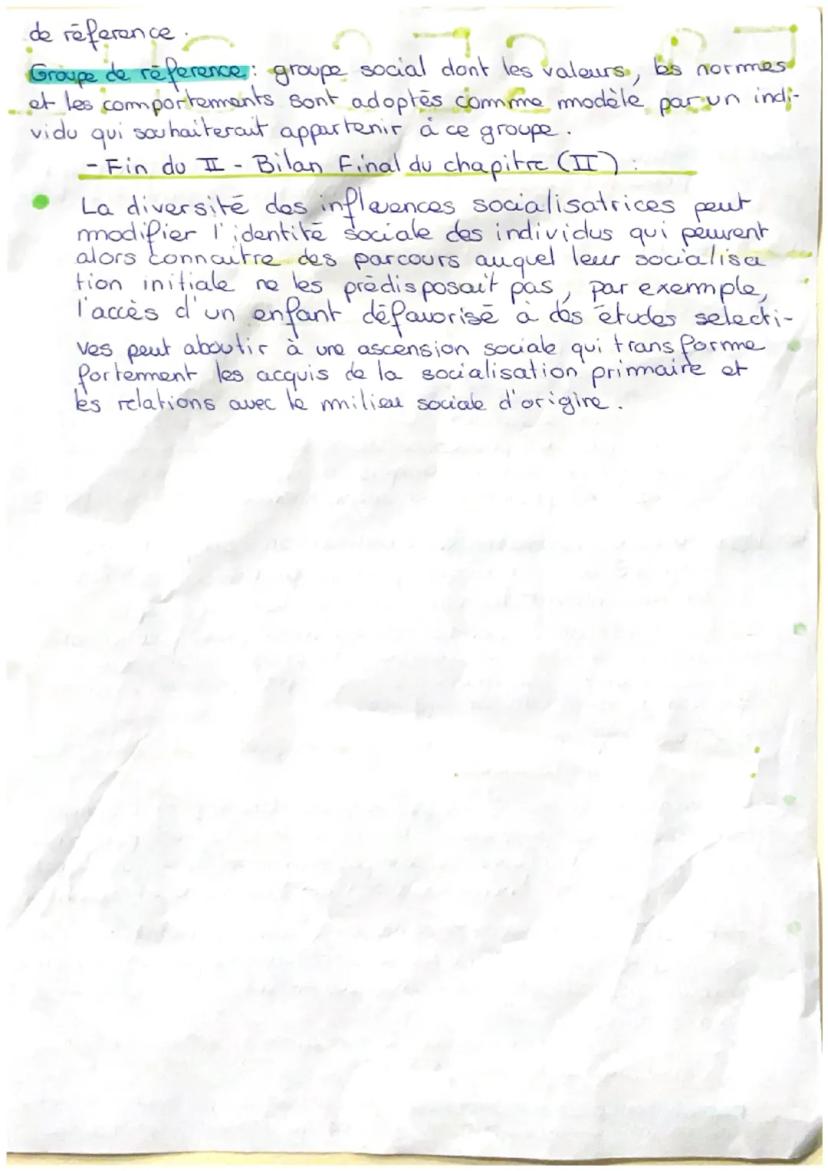 de réference.
Groupe de réference : groupe social dont les valeurs, les normes
et les comportements sont adoptés comme modèle par un indi-
vidu qui souhaiterait appartenir à ce groupe.
- Fin du II - Bilan Final du chapitre (II) :
La diversité des influences socialisatrices peut
modifier l'identité sociale des individus qui peuvent
alors connaitre des parcours auquel leur socialisa
tion initiale ne les prédisposait pas, par exemple,
l'accès d'un enfant défavorisé à des études selecti-
ves peut aboutir à une ascension sociale qui transforme
fortement les acquis de la socialisation primaire et
les relations avec le milieu sociale d'origine.